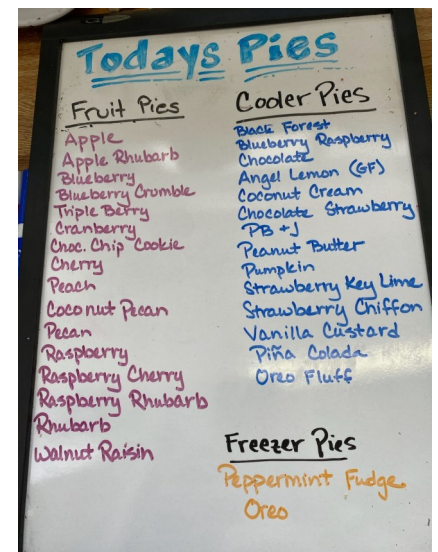 Todays Pies
Fruit Pies
Apple
Apple Rhubarb
Blueberry
Blueberry Crumble
Triple Berry
Cranberry
Choc. Chip Cookie
Cherry
Peach
Coconut Pecan
Pecan
Raspberry
Raspberry Cherry
Raspberry Rhubarb
Rhubarb
Walnut Raisin
Cooler Pies
Black Forest
Blueberry Raspberry
Chocolate
Angel Lemon (GF)
Coconut Cream
Chocolate Strawberry
PB + J
Peanut Butter
Pumpkin
Strawberry Key Lime
Strawberry Chiffon
Vanilla Custard
Piña Colada
Oreo Fluff
Freezer Pies
Peppermint Fudge
Oreo